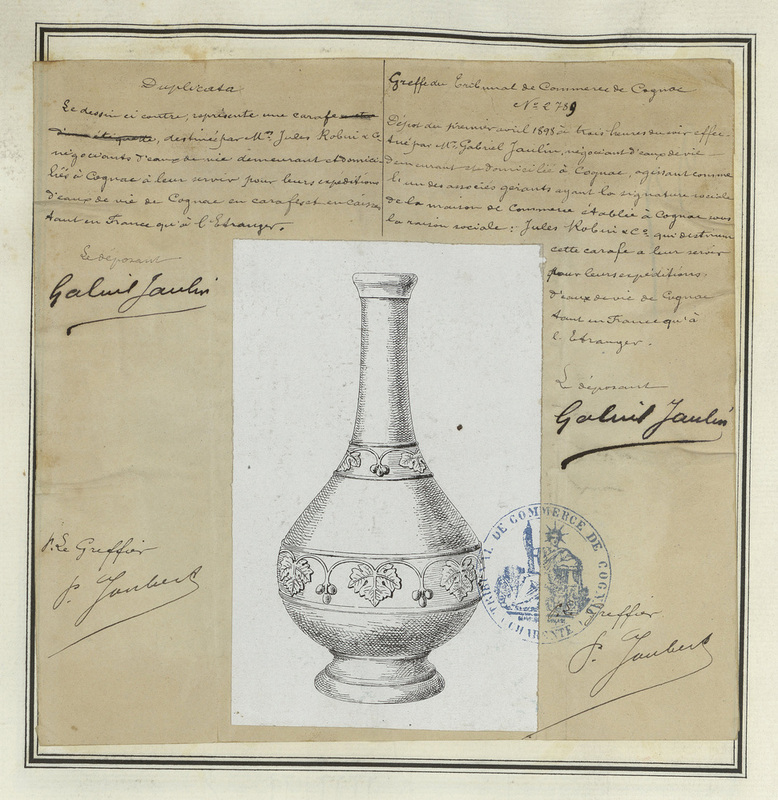 Duplicata
Le dessin ci contre, représente une carafe
d'une étiquette, destinée par Mrs Jules Robin & Co
négociants d'eaux de vie demeurant et domici-
liés à Cognac à leur servir pour leurs expéditions
d'eaux de vie de Cognac en carafes et en caisses
tant en France qu'à l'Etranger.
Le déposant
Gabriel Jaulin
p. Le Greffier
P. Joubert
Greffe du Tribunal de Commerce de Cognac
No 2789
Dépôt du premier avril 1898 à trois heures du soir effec-
tué par Mr Gabriel Jaulin, négociant d'eaux de vie
demeurant et domicilié à Cognac, agissant comme
l'un des associés gérants ayant la signature sociale
de la maison de Commerce établie à Cognac sous
la raison sociale: Jules Robin & Co qui destinent
cette carafe a leur servir
pour leurs expéditions
d'eaux de vie de Cognac
tant en France qu'à
l'Etranger.
Le déposant
Gabriel Jaulin
TRIBUNAL DE COMMERCE DE COGNAC
(CHARENTE)
Greffier
P. Joubert